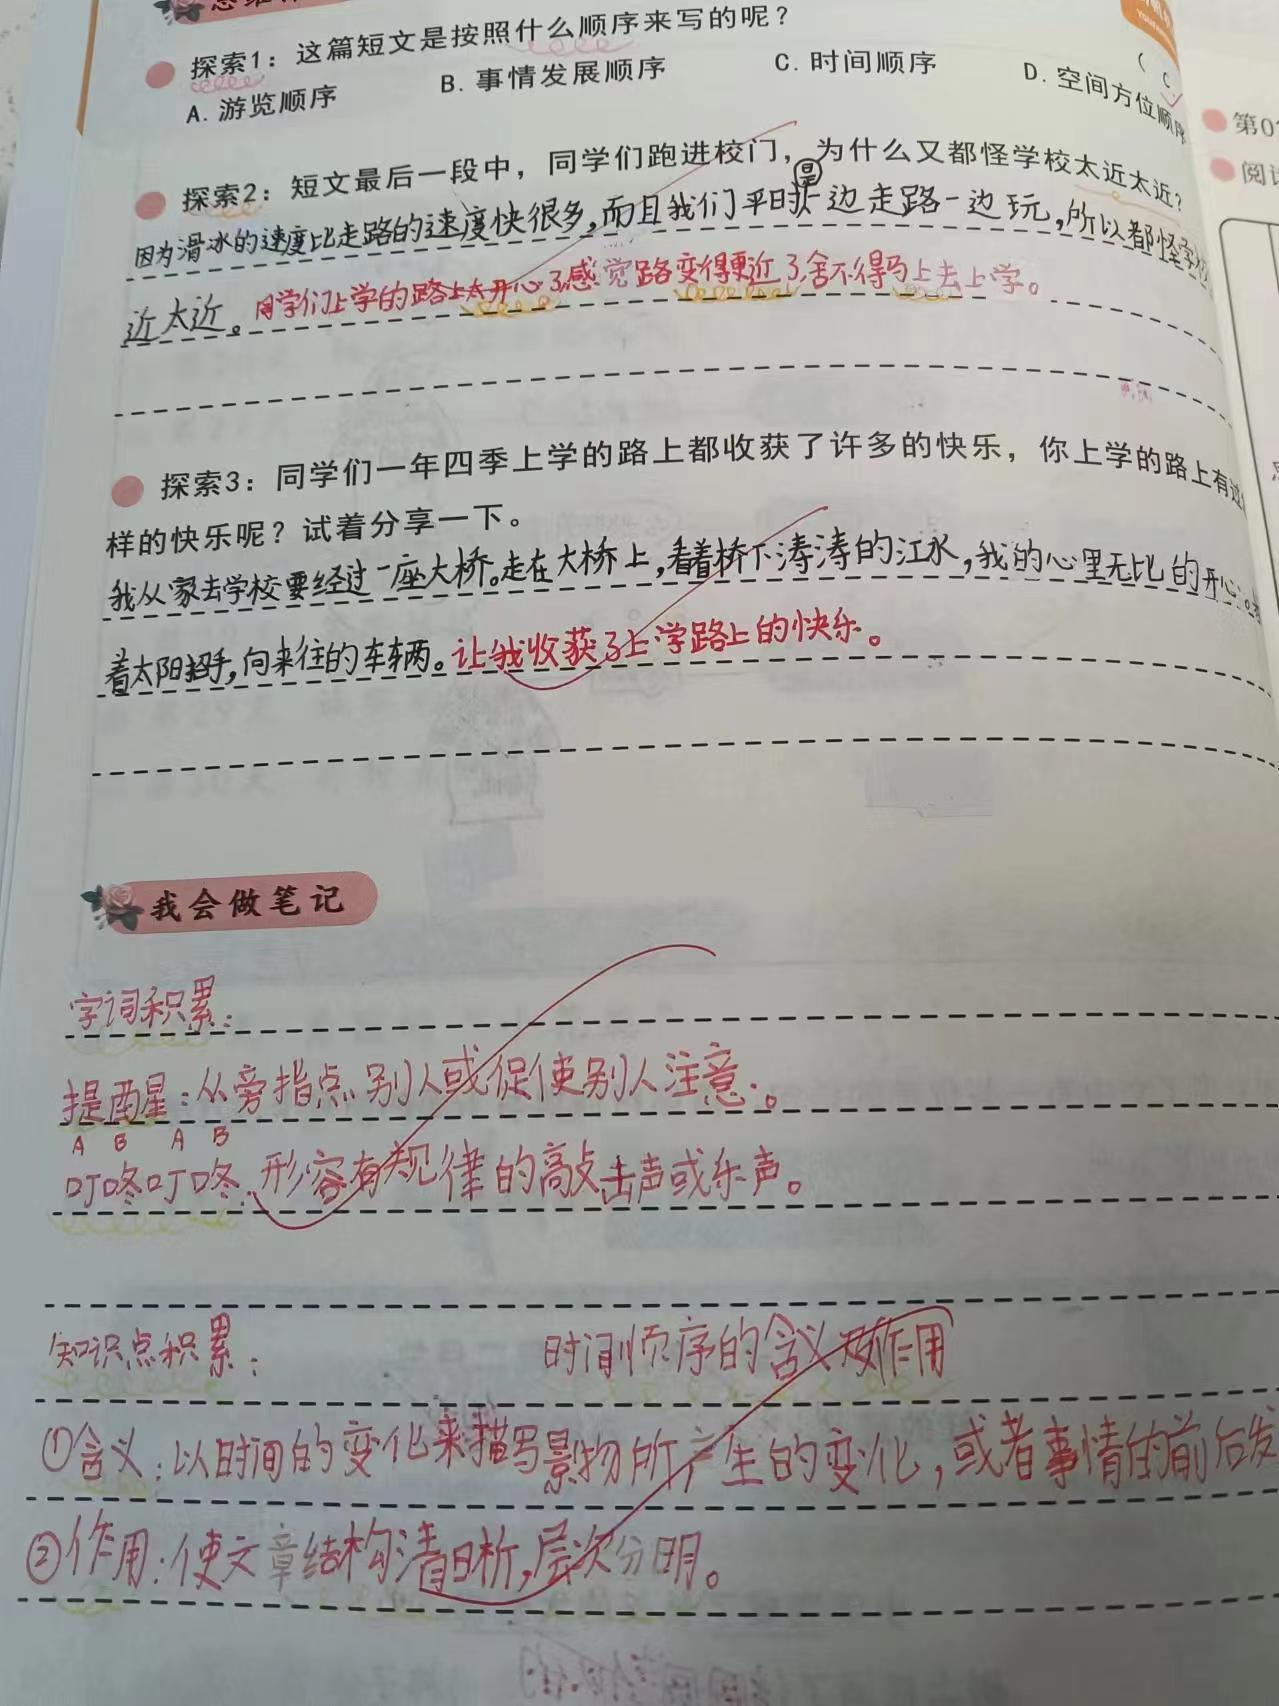 探索1：这篇短文是按照什么顺序来写的呢？
（ C
A. 游览顺序 B. 事情发展顺序 C. 时间顺序 D. 空间方位顺序
探索2：短文最后一段中，同学们跑进校门，为什么又都怪学校太近太近？
是
因为滑冰的速度比走路的速度快很多，而且我们平时 一边走路一边玩，所以都怪学校
近太近。同学们上学的路上太开心了感觉路变得更近了，舍不得马上去上学。
探索3：同学们一年四季上学的路上都收获了许多的快乐，你上学的路上有这
样的快乐呢？试着分享一下。
我从家去学校要经过一座大桥。走在大桥上，看着桥下涛涛的江水，我的心里无比的开心。
着太阳招手，向来往的车辆。让我收获了上学路上的快乐。
我会做笔记
字词积累：
提醒：从旁指点别人或促使别人注意。
A B A B
叮咚叮咚：形容有规律的敲击声或乐声。
知识点积累： 时间顺序的含义及作用
①含义：以时间的变化来描写景物所产生的变化，或者事情的前后发
②作用：使文章结构清晰，层次分明。
第0
阅读